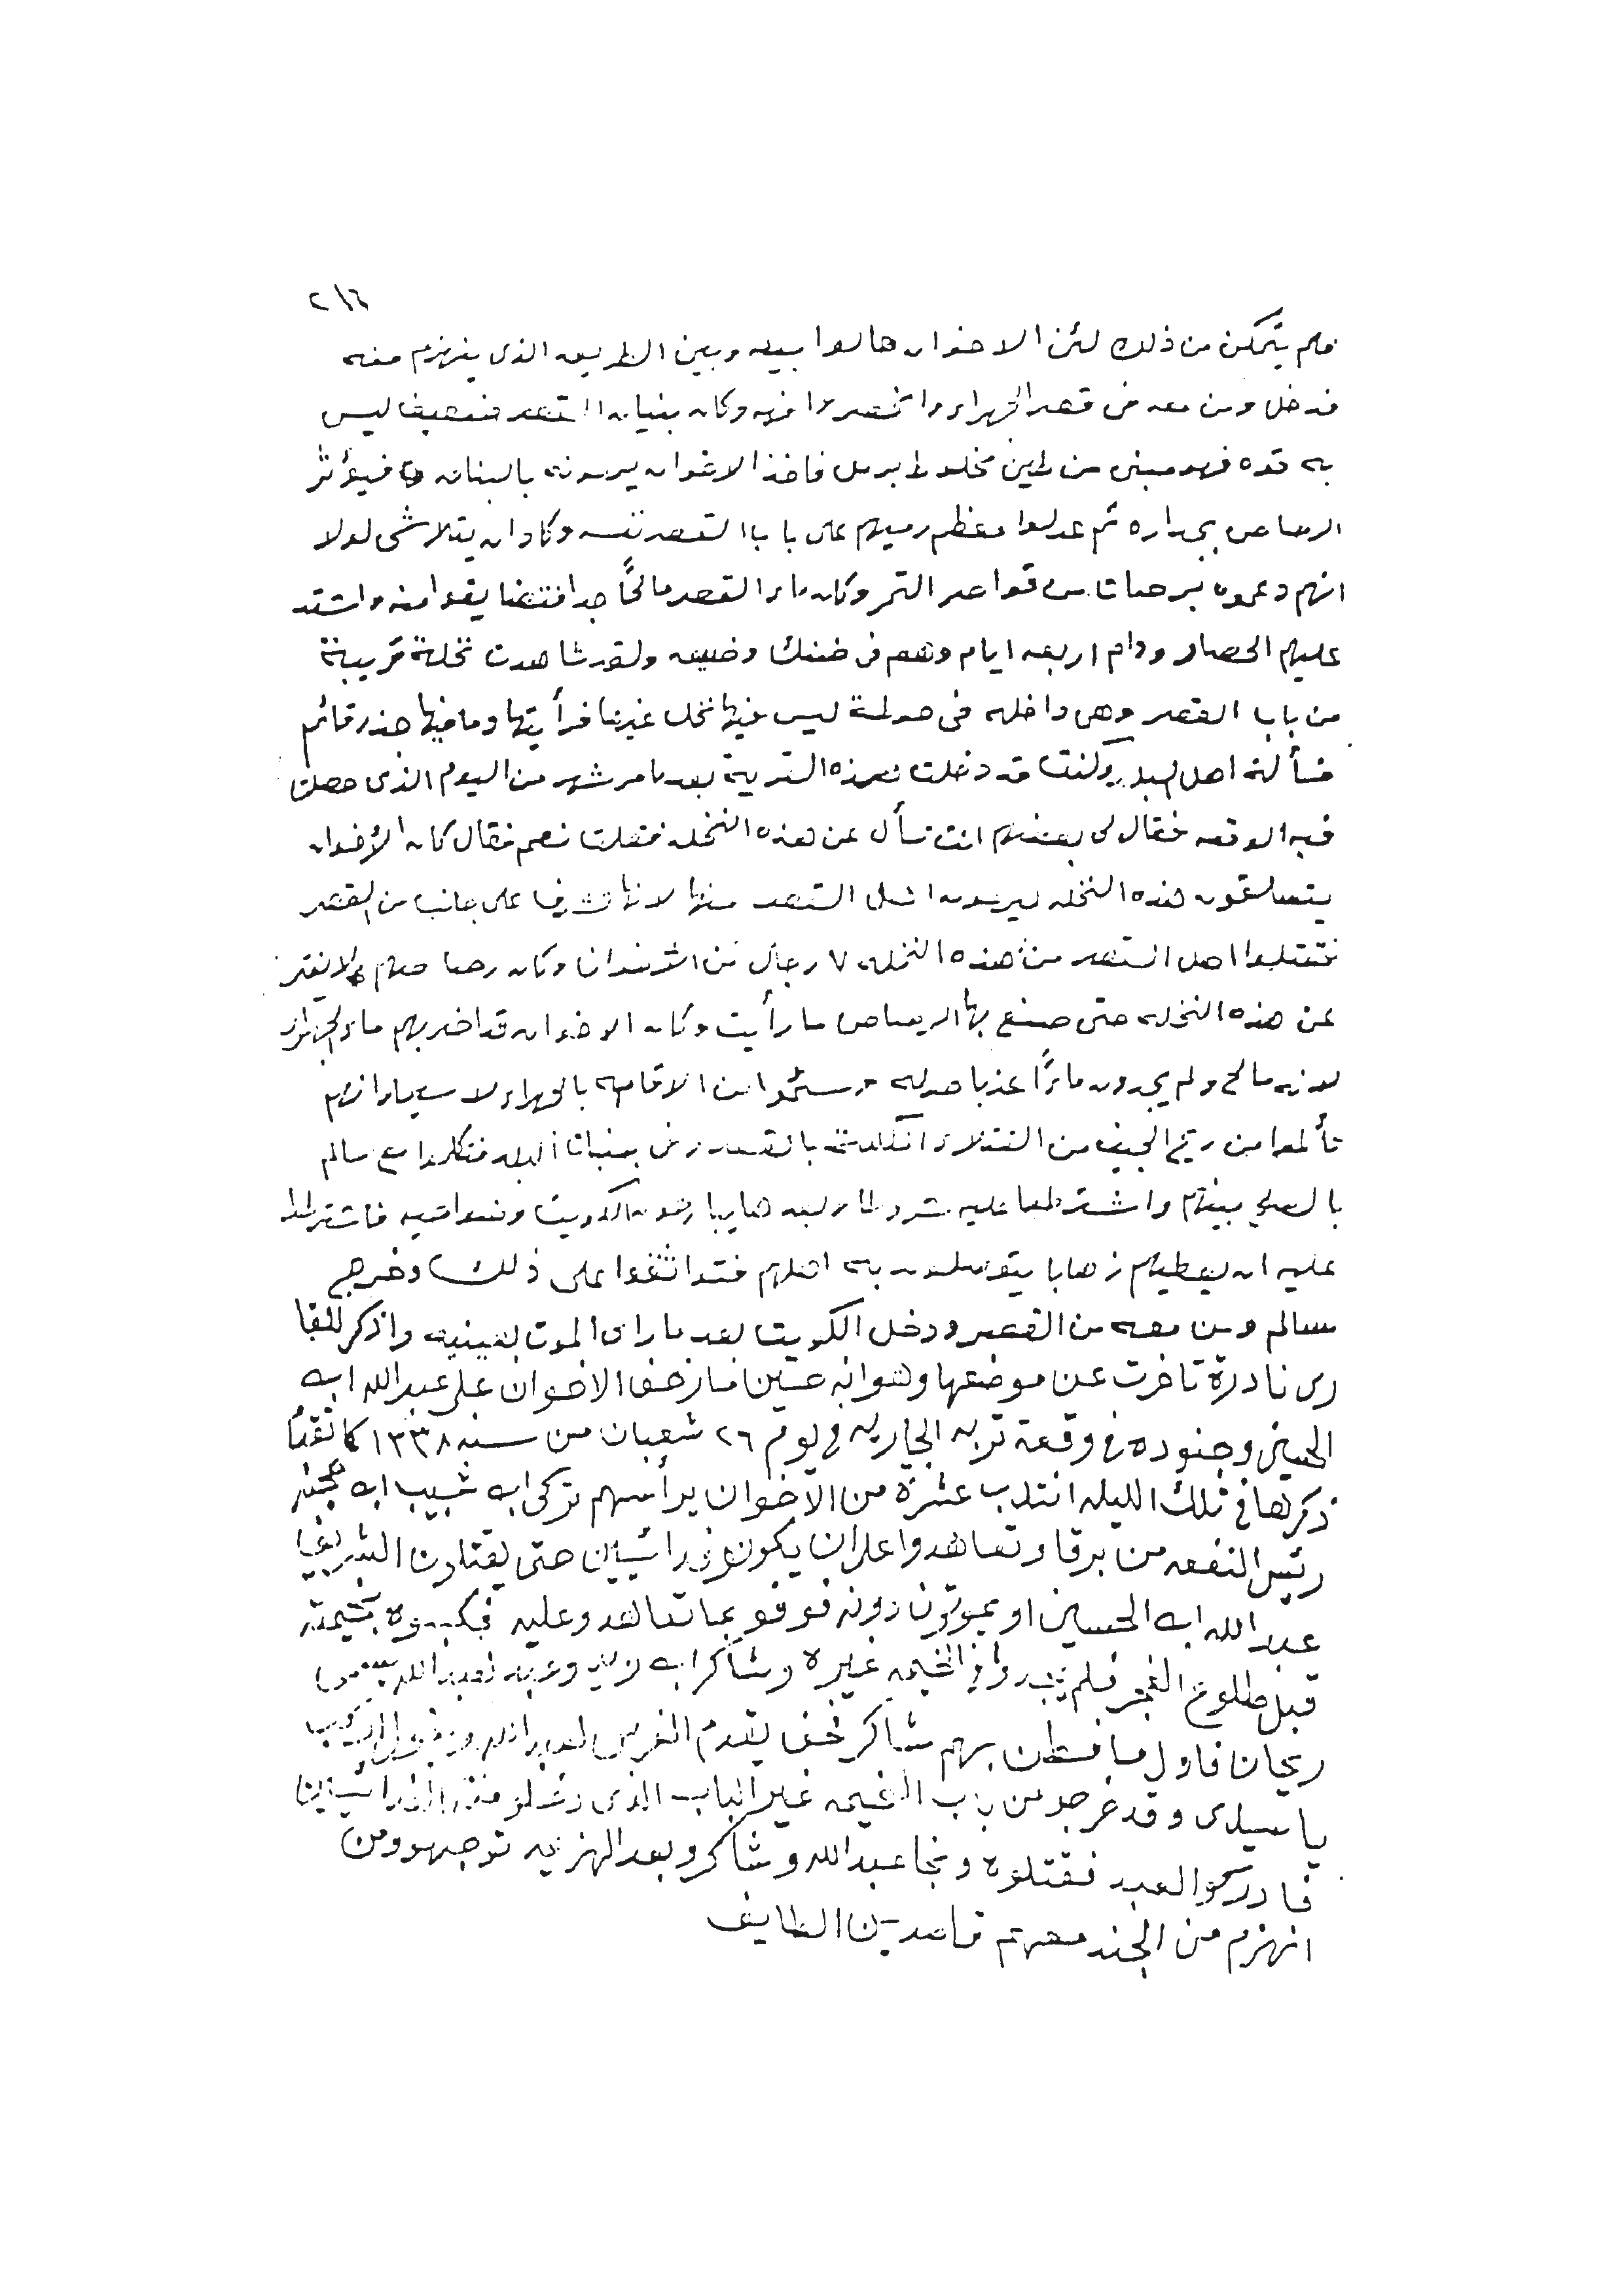 ٢١٦
فلم يتمكن من ذلك لئن الاخوان حالوا بينه وبين الطريق الذى ينهزم منه
فدخل ومن معه فى قصر الجهراء وانحصروا فيه وكان بنيان القصر ضعيفا ليس
به قوه فهو مبنى من طين مخلوط برمل فاخذ الاخوان يرمونه بالبنادق فيؤثر
الرصاص بجداره ثم عدلوا معظم رميهم على باب القصر نفسه وكاد ان يتلاشى لولا
انهم دعموه من قواصر التمر وكان ماء القصر مالحًا جدا منه واشتد
عليهم الحصار ودام اربعه ايام وهم فى ضنك وضيق ولقد شاهدت نخلة قريبة
من باب القصر وهى داخله فى حوطة ليس فيها نخل غيرها فرأيتها وما فيها جذر قائم
فسألة اهل البلد وكنت قد دخلت هذه القرية بعد ما مر شهر من اليوم الذى حصلت
فيه الوقعه فقال لى بعضهم انت تسأل عن هذه النخله فقلت نعم فقال كان الأخوان
يتسلقون هذه النخله ليرمون اهل القصر منها لانها تشرف على جانب من القصر
فقتلوا اهل القصر من هذه النخله ٧ رجال من الاخوان وكان رصاصهم لا يفتر
عن هذه النخله حتى صنع بها الرصاص ما رأيت وكان الاخوان قد اضر بهم ماء الجهراء
لانه مالح ولم يجدون ماءًا عذبا حوله وسئموا من الاقامه بالجهراء لا سيما وانهم
تألموا من ريح الجيف من القتلاء بالقصر وفى جنبات البلد فتكلموا مع سالم
بالصلح بينهم واشترطوا عليه شروطا الكويت ونواحيه فاشترطوا
عليه ان يعطيهم زهابا يتوصلون به اهلهم فتواثقوا على ذلك وخرج
سالم ومن معه من القصر ودخل الكويت بعد ما راى الموت بعينيه واذكر للقا
رى نادرة تاخرت عن موضعها وهو انه حين ما زحف الاخوان على عبدالله ابن
الحسين وجنوده فى وقعة تربه الجاريه فى يوم ٢٦ شعبان من سنه ١٣٣٨ كما تقدم
ذكرها فى تلك الليله انتدب عشرة من الاخوان يرأسهم تركى ابن شبيب ابن
رئيس النفعه من برقا وتعاهدوا على ان يكونو فدائيين حتى يقتلون الشريف
عبدالله ابن الحسين او يموتون دونه فوفو بما تعاهدو عليه فكبسوه بخيمته
قبل طلوع الفجر فلم يجدوا فى الخيمه غيره وشاكر ابن زيد وعبد لعبدالله يسمى
ريحان فاول ما فطن بهم شاكر فخف يقدم الفرس لعبدالله ويقول اركب
يا سيدى وقد خرجو من باب الخيمه غير الباب الذى دخلو منه الفدائيين
فادركو العبد فقتلوه ونجا عبدالله وشاكر وبعد الهزيمه توجهو ومن
انهزم من الجند معهم قاصدين الطايف